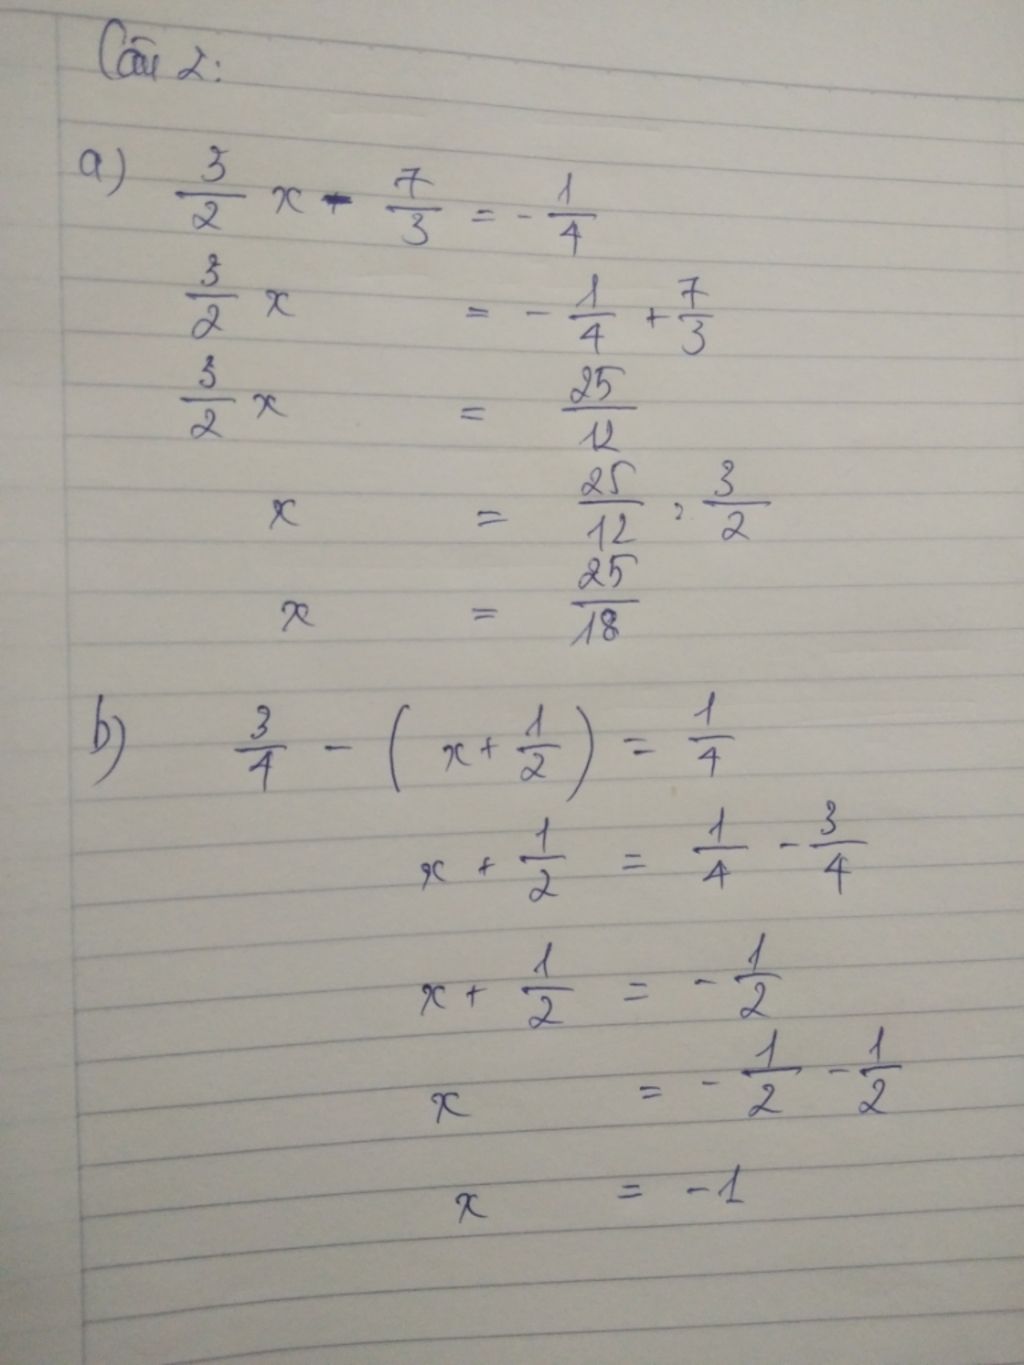 Câu 2:
a) 3/2 x - 7/3 = - 1/4
3/2 x = - 1/4 + 7/3
3/2 x = 25/12
x = 25/12 : 3/2
x = 25/18
b) 3/4 - ( x + 1/2 ) = 1/4
x + 1/2 = 1/4 - 3/4
x + 1/2 = - 1/2
x = - 1/2 - 1/2
x = -1